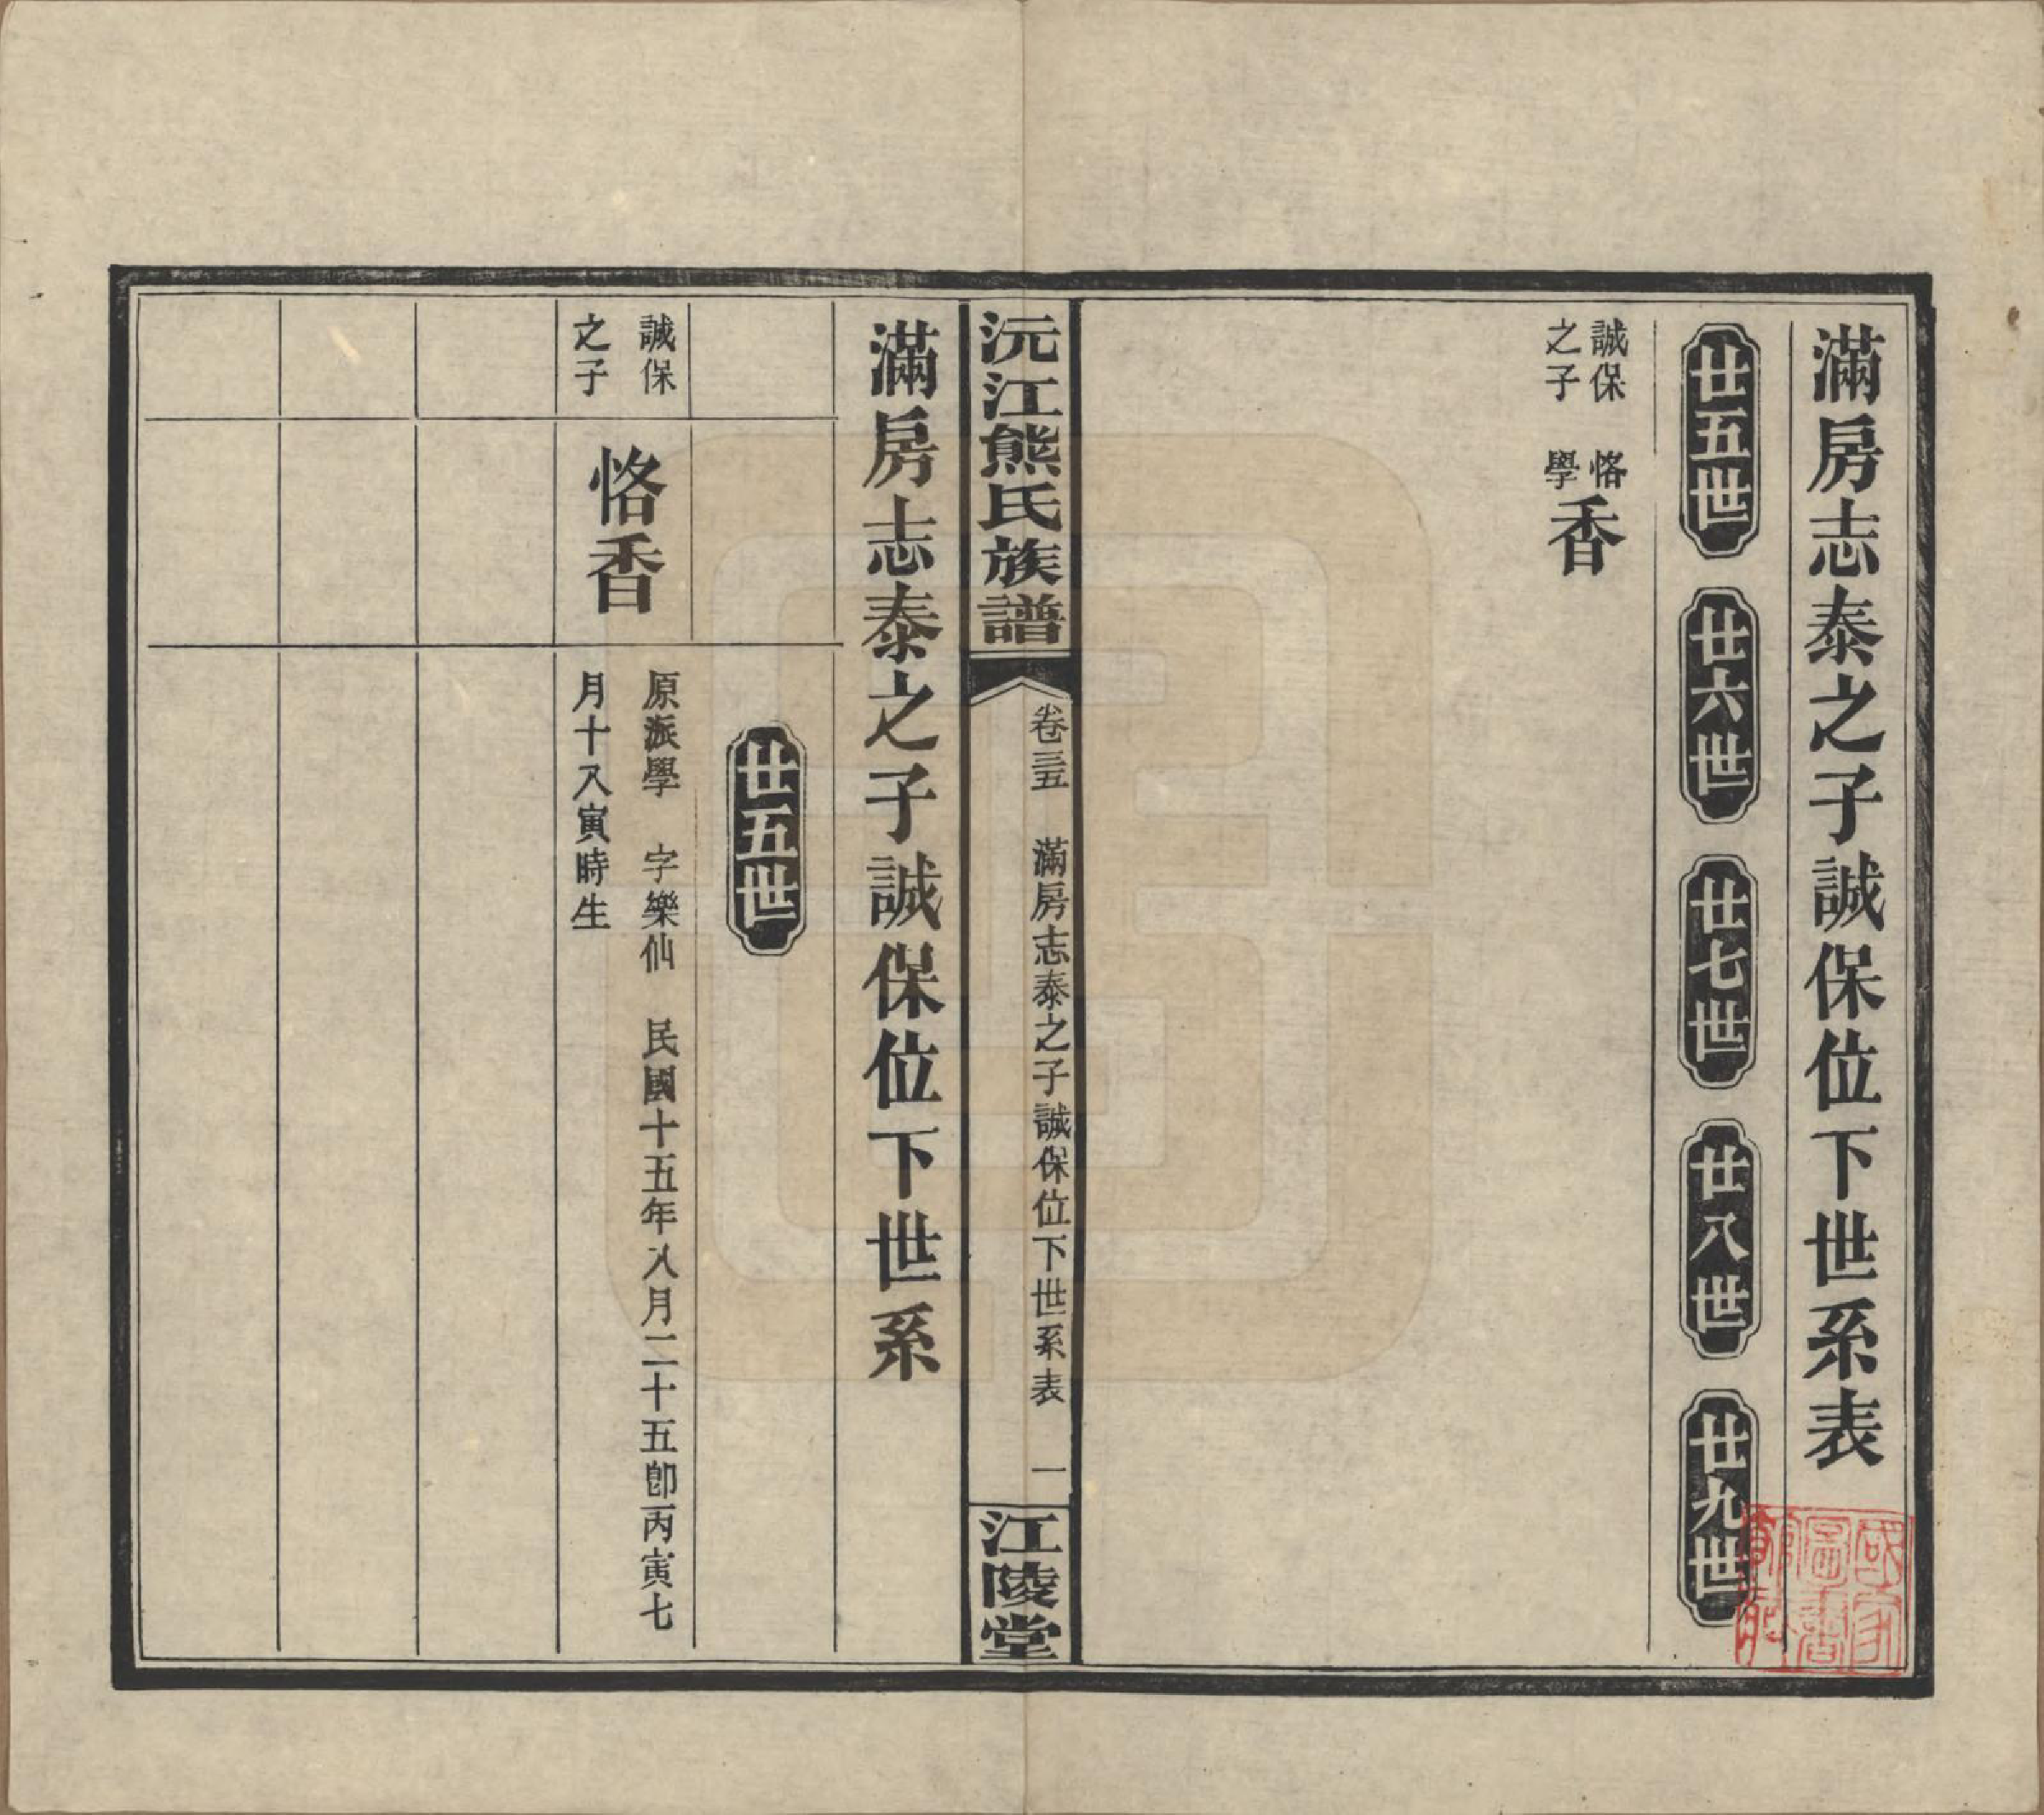 滿房志泰之子誠保位下世系表
廿五世
廿六世
廿七世
廿八世
廿九世
誠保
之子
恪
學
香
沅江熊氏族譜
卷三五
滿房志泰之子誠保位下世系表
一
江陵堂
滿房志泰之子誠保位下世系
廿五世
誠保
之子
恪香
原派學 字樂仙 民國十五年八月二十五卽丙寅七
月十八寅時生
國家
圖書
館藏